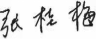 张桂梅